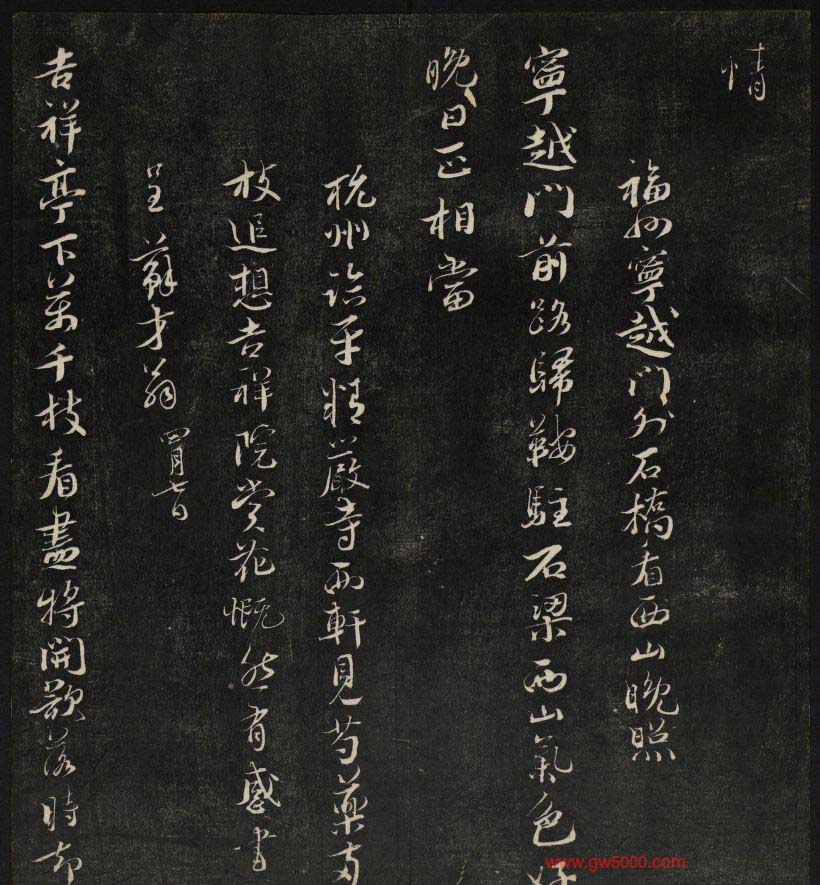 情
福州寧越門外石橋看西山晚照
寧越門前路歸鞍駐石梁西山氣色好
晚日正相當
杭州臨平精嚴寺西軒見芍藥兩
枝追想吉祥院賞花慨然有感書
呈蘇才翁 四月七日
吉祥亭下萬千枝看盡將開欲落時却
www.gw5000.com